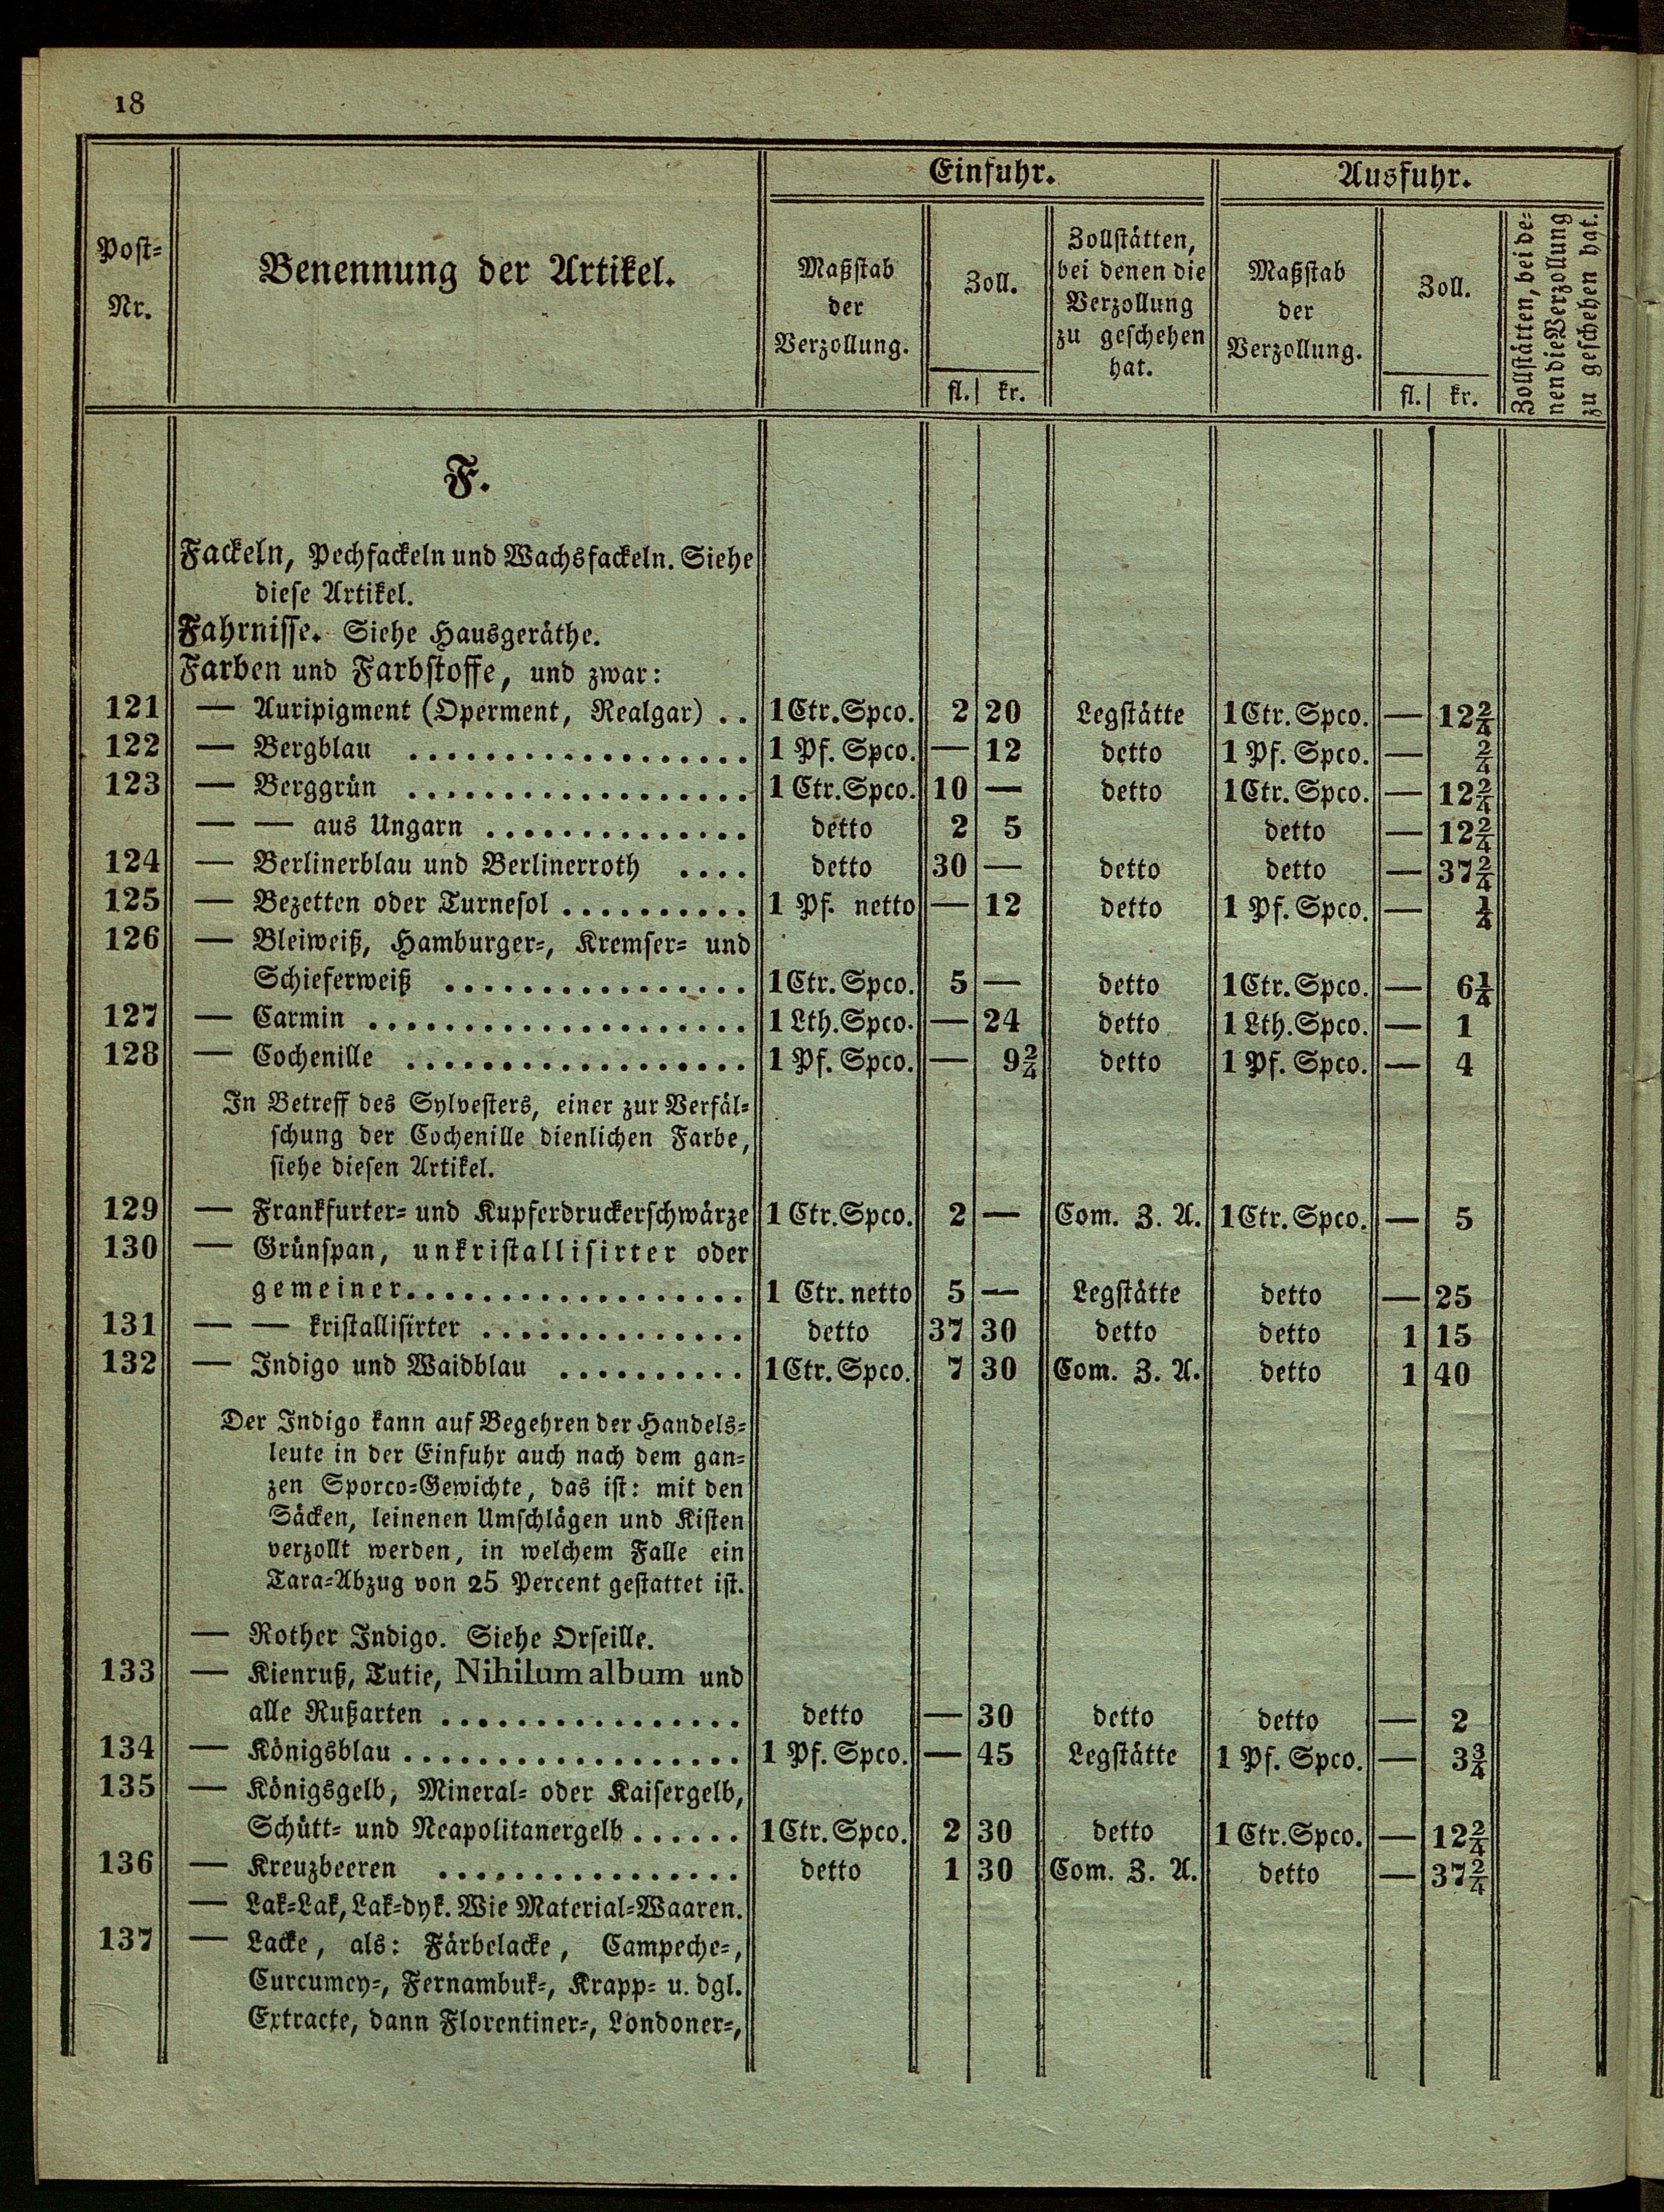 18
Einfuhr. Ausfuhr.
Post-
Nr.
Benennung der Artikel.
Maßstab
der
Verzollung.
Zoll.
fl. kr.
Zollstätten,
bei denen die
Verzollung
zu geschehen
hat.
Maßstab
der
Verzollung.
Zoll.
fl. kr.
Zollstätten, bei de-
nen die Verzollung
zu geschehen hat.
F.
Fackeln, Pechfackeln und Wachsfackeln. Siehe
diese Artikel.
Fahrnisse. Siehe Hausgeräthe.
Farben und Farbstoffe, und zwar:
121 — Auripigment (Operment, Realgar) .. 1 Ctr. Spco. 2 20 Legstätte 1 Ctr. Spco. — 12 2/4
122 — Bergblau .................. 1 Pf. Spco. — 12 detto 1 Pf. Spco. — 2/4
123 — Berggrün .................. 1 Ctr. Spco. 10 — detto 1 Ctr. Spco. — 12 2/4
— — aus Ungarn .............. detto 2 5 detto — 12 2/4
124 — Berlinerblau und Berlinerroth .... detto 30 — detto detto — 37 2/4
125 — Bezetten oder Turnesol .......... 1 Pf. netto — 12 detto 1 Pf. Spco. — 1/4
126 — Bleiweiß, Hamburger-, Kremser- und
Schieferweiß ................ 1 Ctr. Spco. 5 — detto 1 Ctr. Spco. — 6 1/4
127 — Carmin .................... 1 Lth. Spco. — 24 detto 1 Lth. Spco. — 1
128 — Cochenille .................. 1 Pf. Spco. — 9 2/4 detto 1 Pf. Spco. — 4
In Betreff des Sylvesters, einer zur Verfäl-
schung der Cochenille dienlichen Farbe,
siehe diesen Artikel.
129 — Frankfurter- und Kupferdruckerschwärze 1 Ctr. Spco. 2 — Com. Z. A. 1 Ctr. Spco. — 5
130 — Grünspan, unkristallisirter oder
gemeiner.................. 1 Ctr. netto 5 — Legstätte detto — 25
131 — — kristallisirter .............. detto 37 30 detto detto 1 15
132 — Indigo und Waidblau .......... 1 Ctr. Spco. 7 30 Com. Z. A. detto 1 40
Der Indigo kann auf Begehren der Handels-
leute in der Einfuhr auch nach dem gan-
zen Sporco-Gewichte, das ist: mit den
Säcken, leinenen Umschlägen und Kisten
verzollt werden, in welchem Falle ein
Tara-Abzug von 25 Percent gestattet ist.
— Rother Indigo. Siehe Orseille.
133 — Kienruß, Tutie, Nihilum album und
alle Rußarten ................ detto — 30 detto detto — 2
134 — Königsblau .................. 1 Pf. Spco. — 45 Legstätte 1 Pf. Spco. — 3 3/4
135 — Königsgelb, Mineral- oder Kaisergelb,
Schütt- und Neapolitanergelb ...... 1 Ctr. Spco. 2 30 detto 1 Ctr. Spco. — 12 2/4
136 — Kreuzbeeren ................ detto 1 30 Com. Z. A. detto — 37 2/4
— Lak-Lak, Lak-dyk. Wie Material-Waaren.
137 — Lacke, als: Färbelacke, Campeche-,
Curcumey-, Fernambuk-, Krapp- u. dgl.
Extracte, dann Florentiner-, Londoner-,